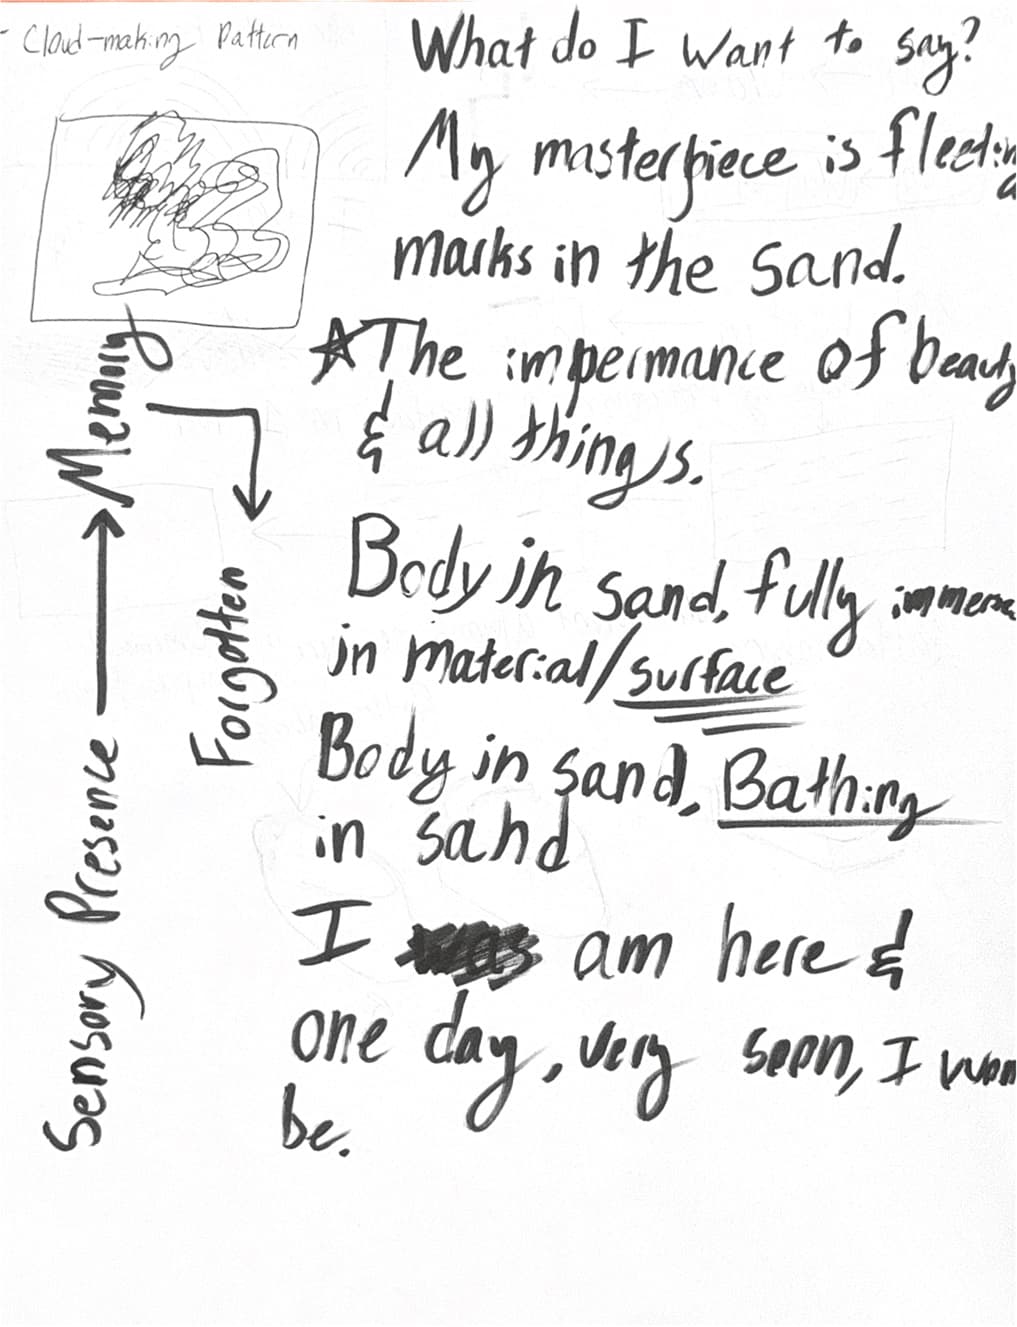 - Cloud-making Pattern
What do I want to say?
My masterpiece is fleeting
marks in the sand.
The impermance of beauty
& all things.
Body in sand, fully
in material/surface
Body in sand, Bathing
in sand
I am here &
one day, very soon, I
be.
Sensory Presence → Memory
Forgotten